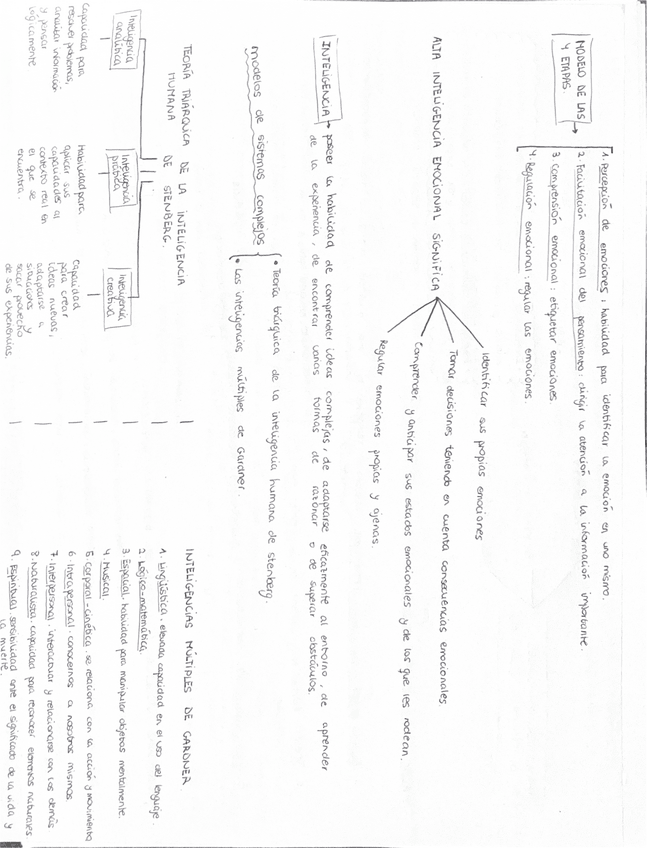 MODELO DE LAS
4 ETAPAS
1. Percepción de emociones: habilidad para identificar la emoción en uno mismo.
2. Facilitación emocional del pensamiento: dirigir la atención a la información importante.
3. Comprensión emocional: etiquetar emociones.
4. Regulación emocional: regular las emociones.
ALTA INTELIGENCIA EMOCIONAL SIGNIFICA
Identificar sus propias emociones
Tomar decisiones teniendo en cuenta consecuencias emocionales.
Comprender y anticipar sus estados emocionales y de los que les rodean.
Regular emociones propias y ajenas.
INTELIGENCIA → poseer la habilidad de comprender ideas complejas, de adaptarse eficazmente al entorno, de aprender
de la experiencia, de encontrar varias formas de razonar o de superar obstáculos.
modelos de sistemas complejos
• Teoría triárquica de la inteligencia humana de stenberg.
• Las inteligencias múltiples de Gardner.
TEORÍA TRIÁRQUICA DE LA INTELIGENCIA
HUMANA DE STENBERG.
Inteligencia
analítica
Capacidad para
resolver problemas,
analizar información
y pensar
lógicamente
Inteligencia
práctica
Habilidad para
aplicar sus
capacidades al
contexto real en
el que se
encuentra.
Inteligencia
creativa
Capacidad
para crear
ideas nuevas,
adaptarse a
situaciones y
sacar provecho
de sus experiencias.
INTELIGENCIAS MÚLTIPLES DE GARDNER.
1. Lingüística. elevada capacidad en el uso del lenguaje.
2. Lógico-matemática.
3. Espacial. habilidad para manipular objetos mentalmente.
4. Musical
5. Corporal-cinética. se relaciona con la acción y movimiento
6. Intrapersonal. conocernos a nosotros mismos.
7. Interpersonal. interactuar y relacionarse con los demás
8. Naturalista. capacidad para reconocer elementos naturales
9. Espiritual. sensibilidad ante el significado de la vida y
la muerte.